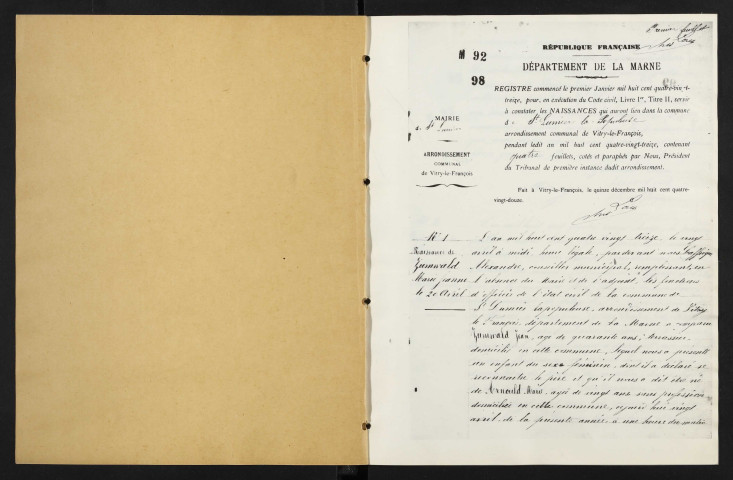 Premier feuillet
M 92
98
RÉPUBLIQUE FRANÇAISE
DÉPARTEMENT DE LA MARNE
REGISTRE commencé le premier Janvier mil huit cent quatre-vingt-
treize, pour, en exécution du Code civil, Livre Ier, Titre II, servir
à constater les NAISSANCES qui auront lieu dans la commune
d St Lumier la Populeuse
arrondissement communal de Vitry-le-François,
pendant ledit an mil huit cent quatre-vingt-treize, contenant
quatre feuillets, cotés et paraphés par Nous, Président
du Tribunal de première instance dudit arrondissement.
Fait à Vitry-le-François, le quinze décembre mil huit cent quatre-
vingt-douze.
MAIRIE
d St Lumier
ARRONDISSEMENT
COMMUNAL
de Vitry-le-François
N° 1
Naissance de
Zumwald
Marie Jeanne
le 20 Avril
L'an mil huit cent quatre vingt treize, le vingt
avril à midi heure légale, pardevant nous
Alexandre, conseiller municipal, remplissant, en
l'absence du Maire et de l'adjoint, les fonctions
d'officier de l'état civil de la commune de
St Lumier la populeuse, arrondissement de Vitry
le François, département de la Marne a comparu
Zumwald Jean, âgé de quarante ans, terrassier,
domicilié en cette commune, lequel nous a présenté
un enfant du sexe féminin, dont il a déclaré se
reconnaître le père et qu'il nous a dit être né
de Arnould Marie, âgée de vingt ans sans profession
domiciliée en cette commune, cejourd'hui vingt
avril de la présente année à une heure du matin